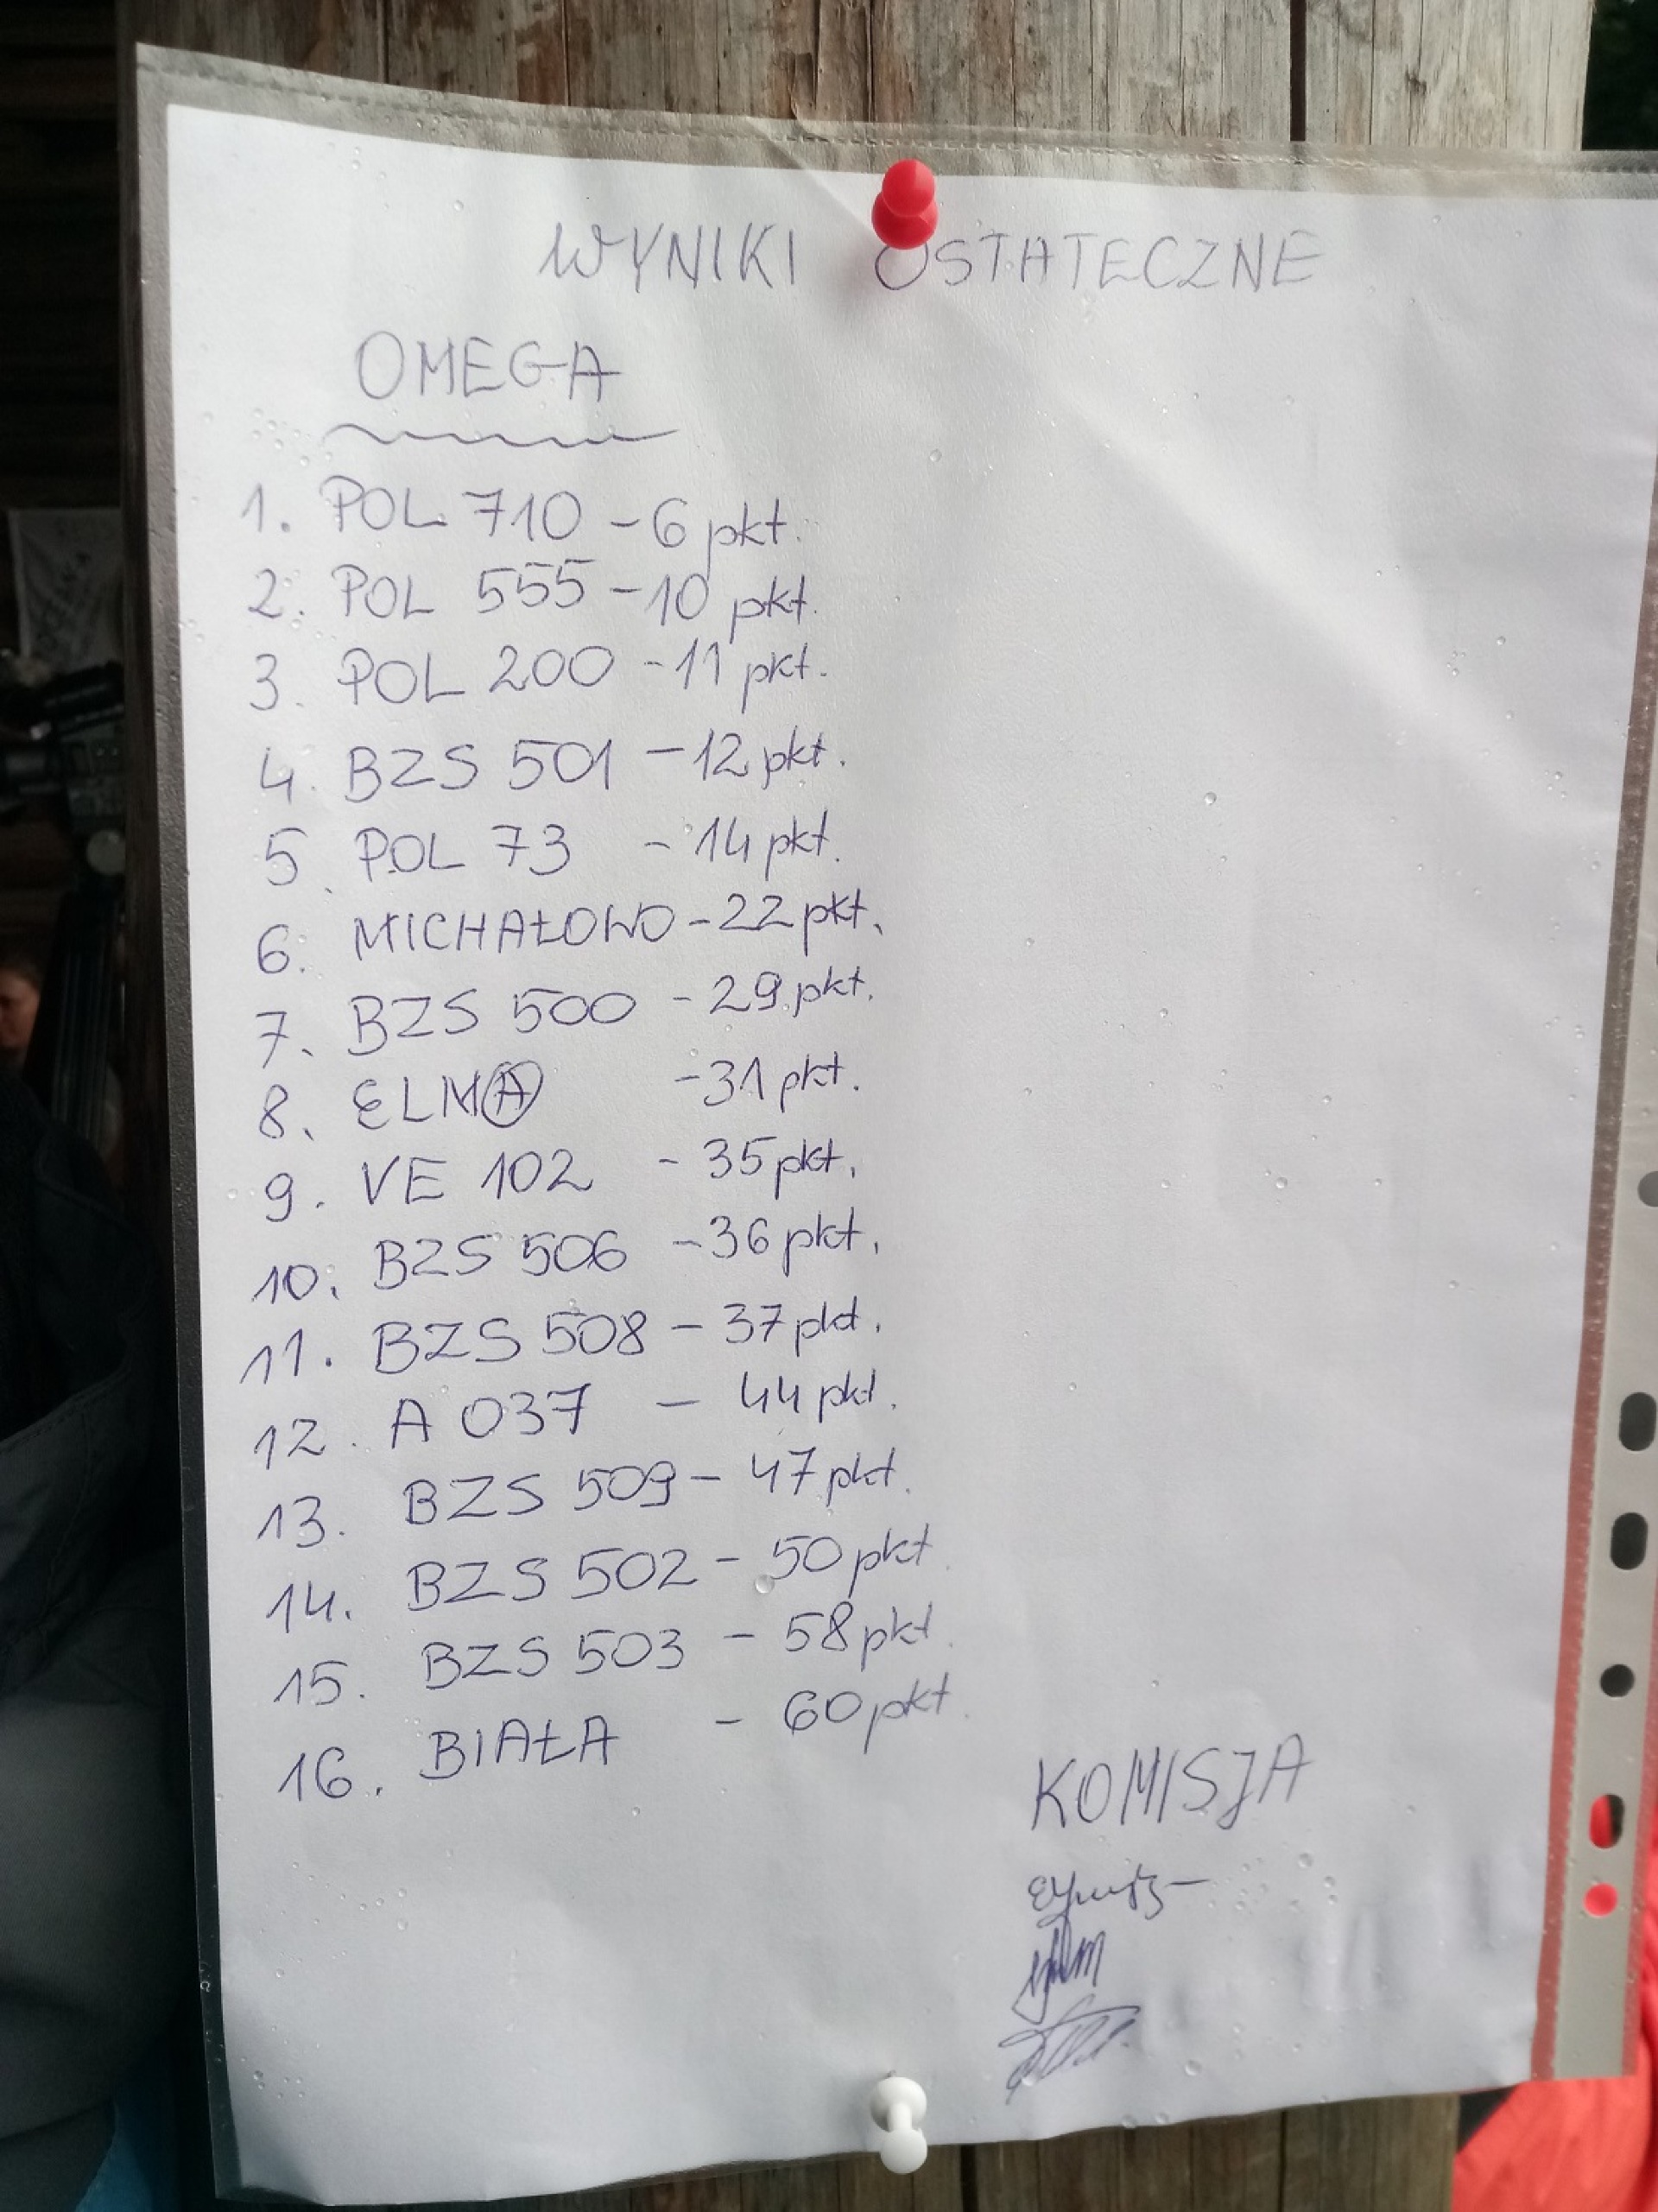 WYNIKI OSTATECZNE
OMEGA
1. POL 710 - 6 pkt.
2. POL 555 - 10 pkt.
3. POL 200 - 11 pkt.
4. BZS 501 - 12 pkt.
5. POL 73 - 14 pkt.
6. MICHAŁOWO - 22 pkt.
7. BZS 500 - 29 pkt.
8. ELMA - 31 pkt.
9. VE 102 - 35 pkt.
10. BZS 506 - 36 pkt.
11. BZS 508 - 37 pkt.
12. A 037 - 44 pkt.
13. BZS 509 - 47 pkt.
14. BZS 502 - 50 pkt.
15. BZS 503 - 58 pkt.
16. BIAŁA - 60 pkt.
KOMISJA